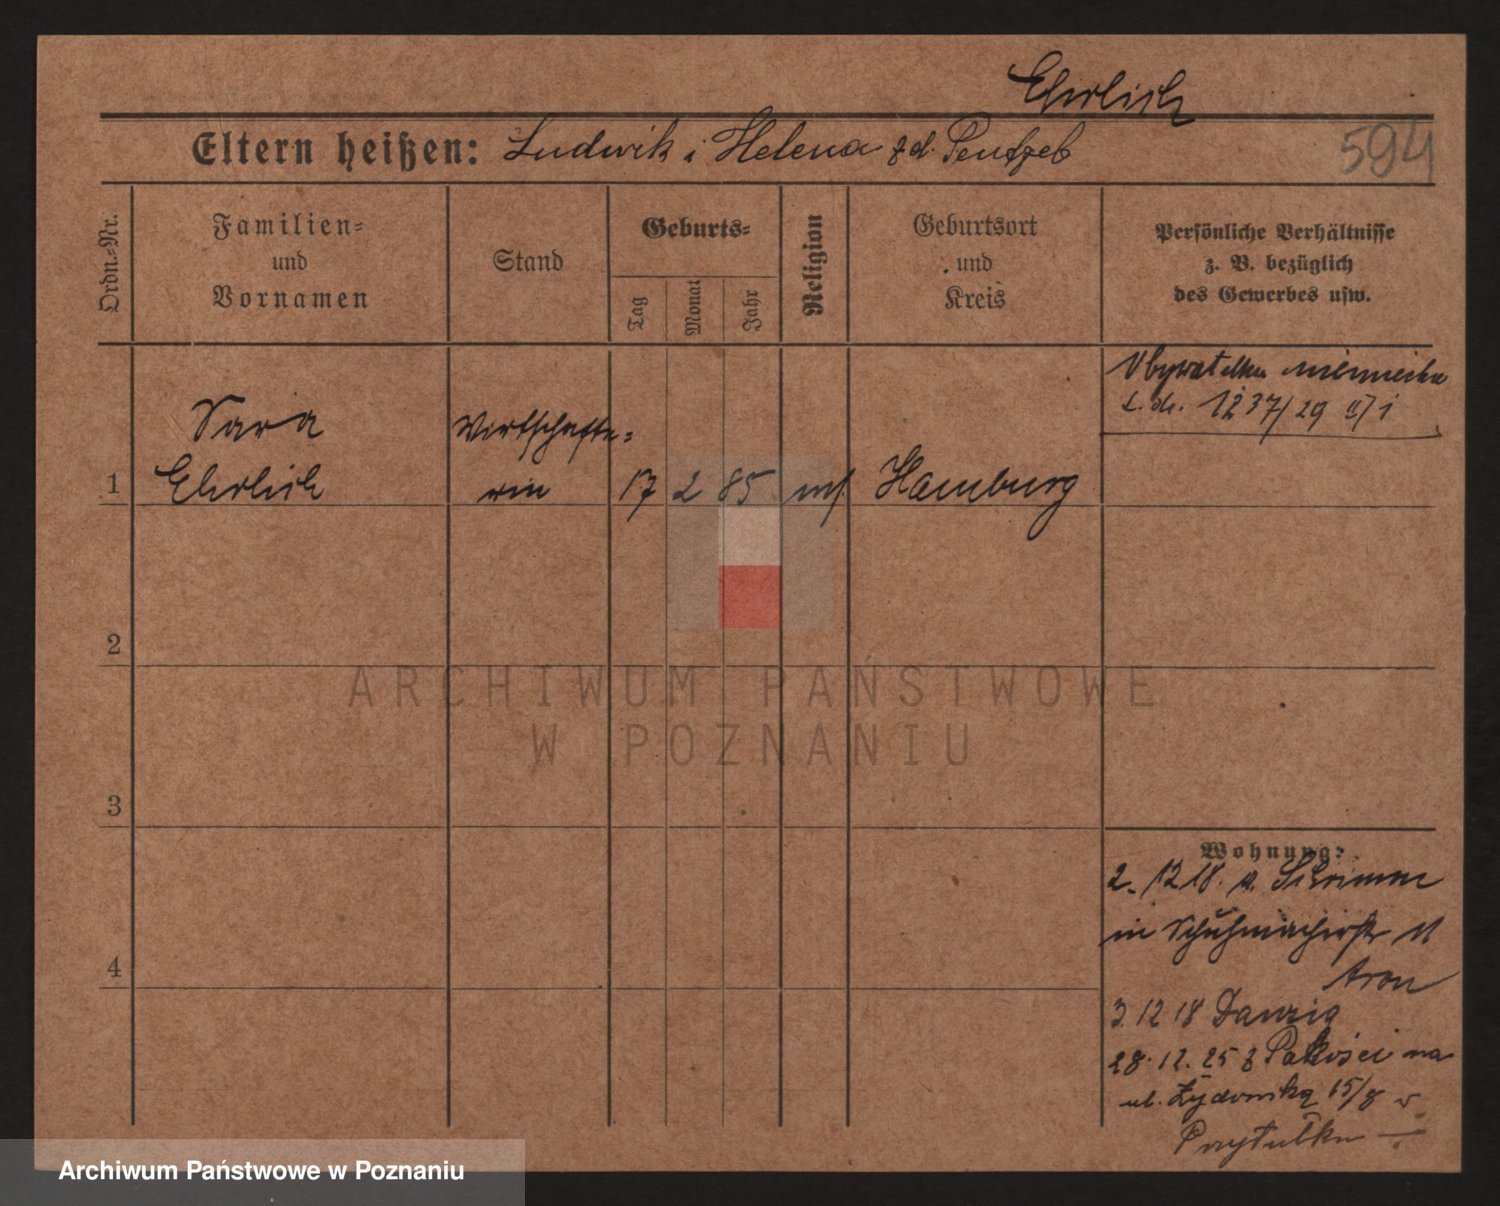 Ehrlich
Eltern heißen: Ludwik i Helena zd.
594
Ordn.-Nr.
Familien-
und
Vornamen
Stand
Geburts-
Tag
Monat
Jahr
Religion
Geburtsort
und
Kreis
Persönliche Verhältnisse
z. B. bezüglich
des Gewerbes usw.
Obywatelka niemiecka
L. dz. 1237/29
1
Sara
Ehrlich
Wirtschafte-
rin
17
2
85
Hamburg
2
3
4
Wohnung:
2. 12 18. Schrimm
in Schuhmacherstr 11
Aron
3. 12 18 Danzig
28. 12. 25 z Pakości na
ul. Żydowską 15/8 w
Przytułku
ARCHIWUM PAŃSTWOWE
W POZNANIU
Archiwum Państwowe w Poznaniu